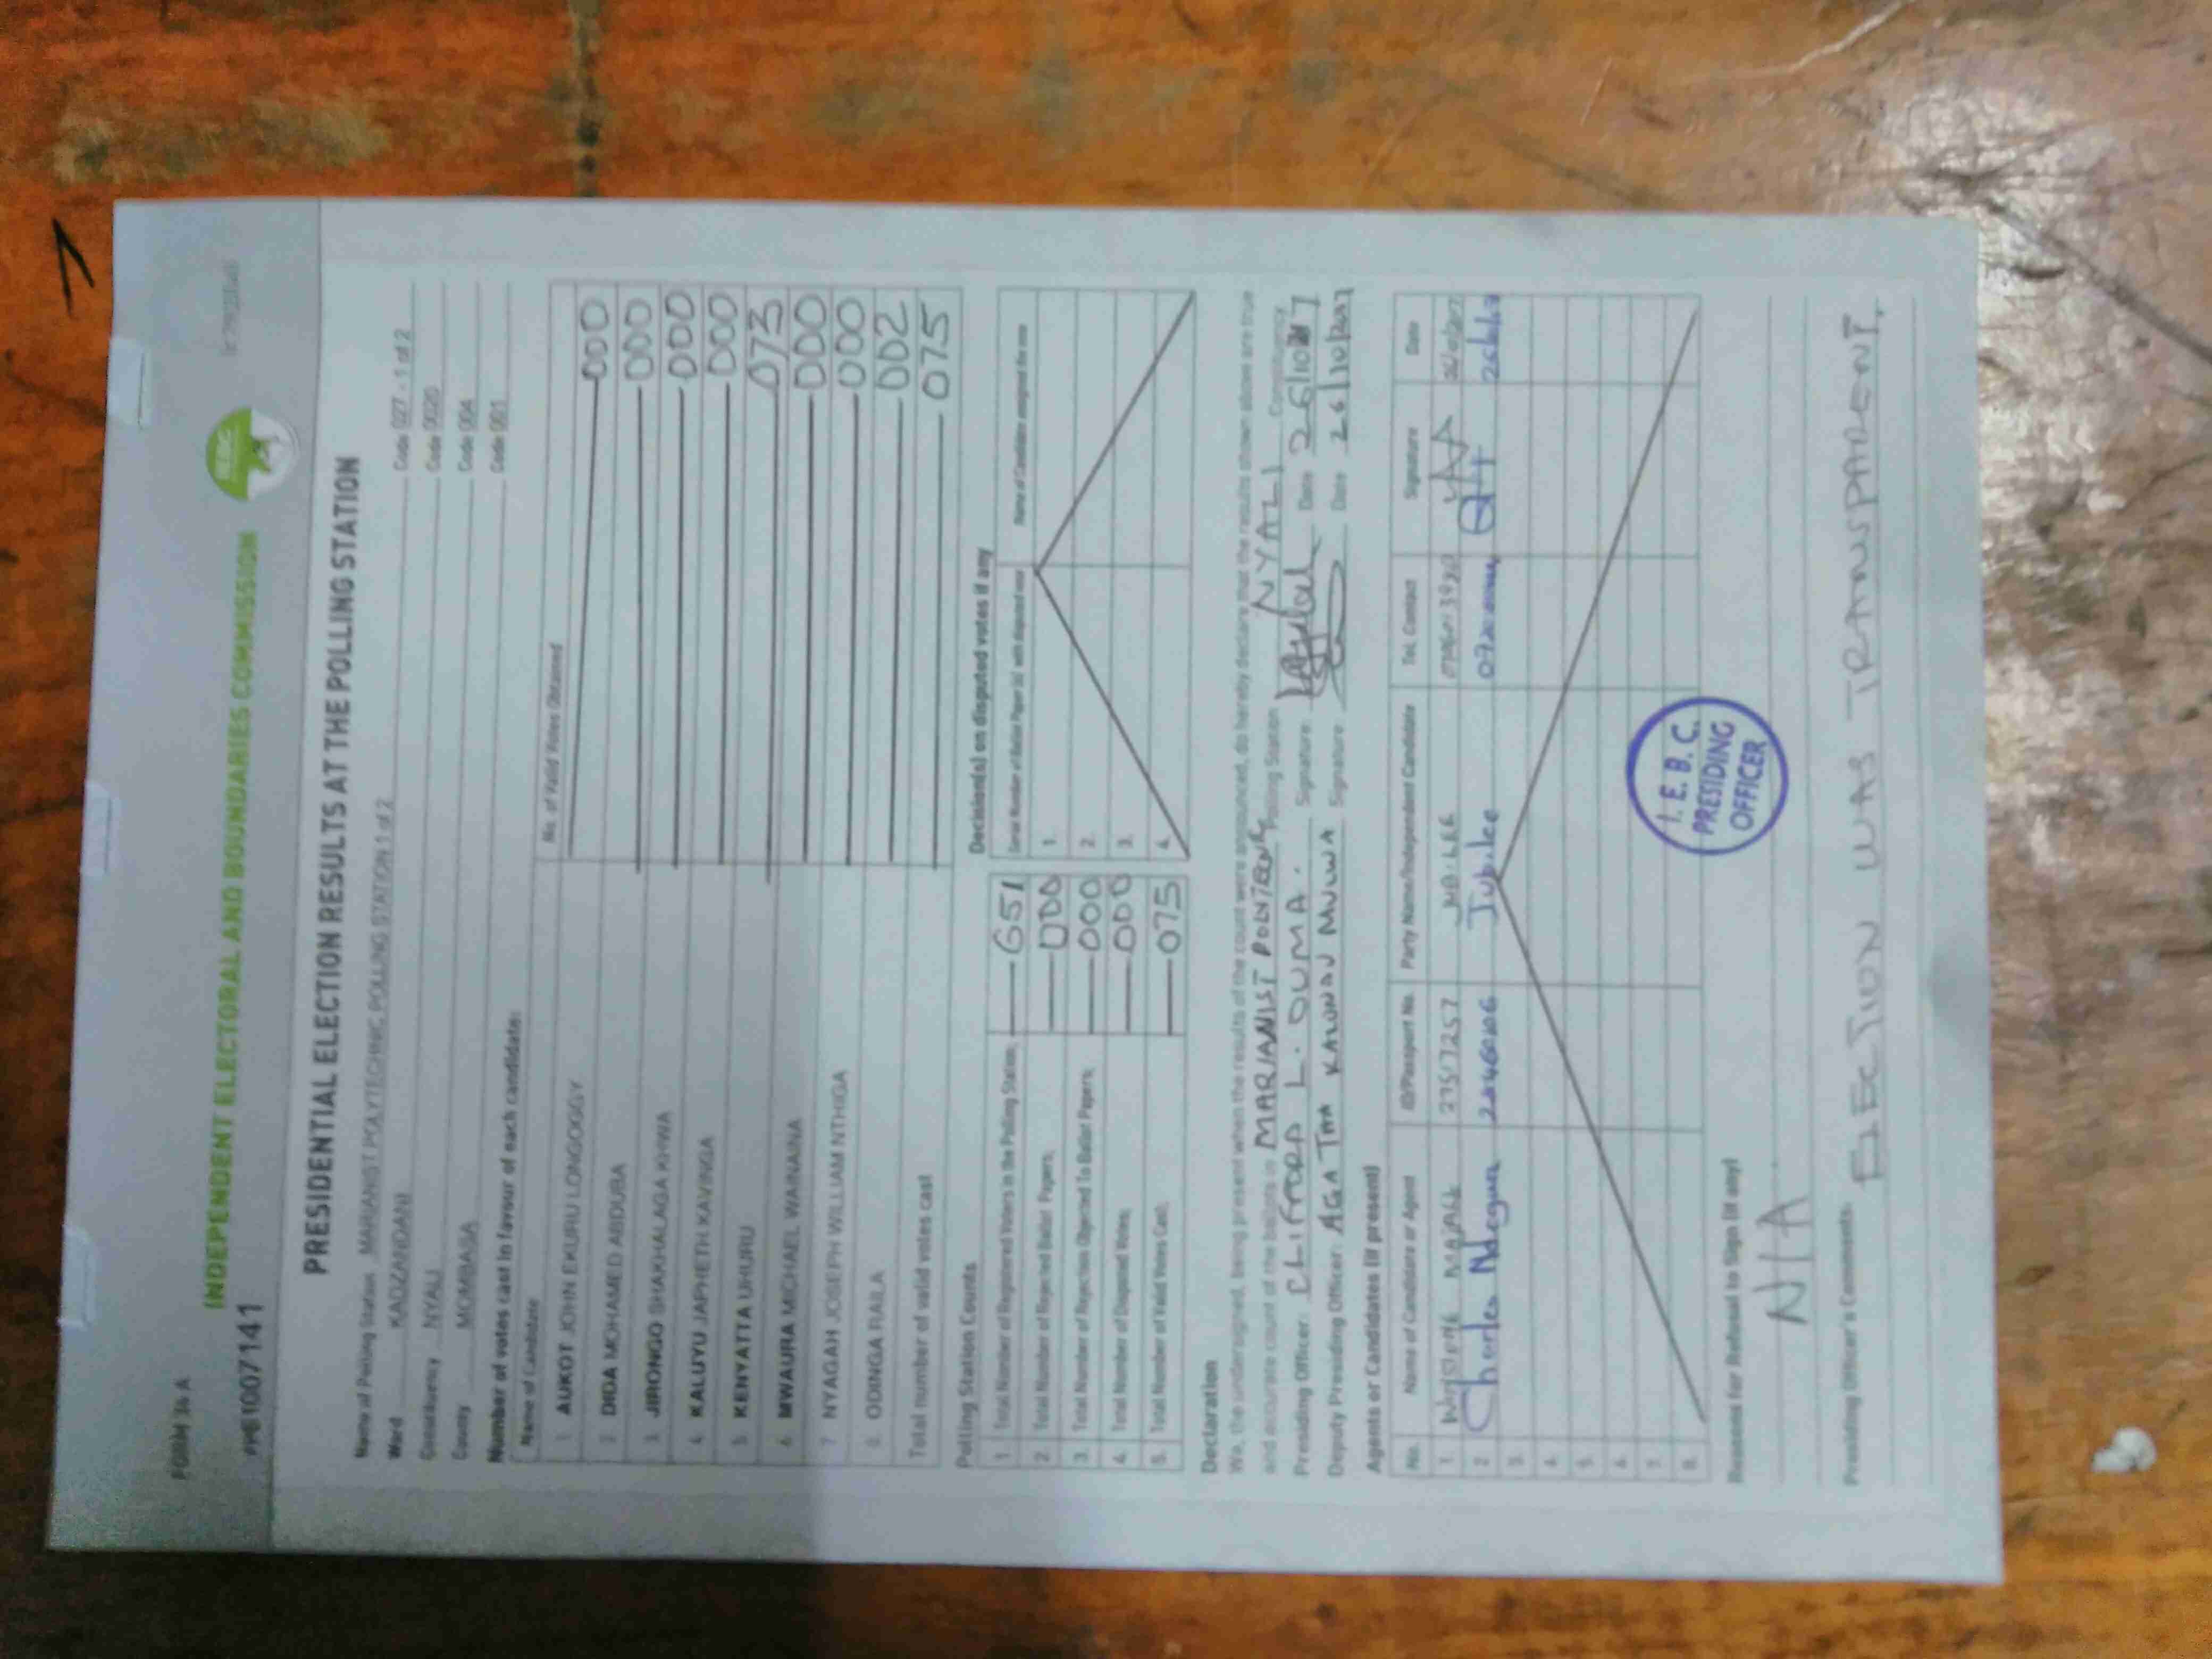 FORM 34 A
INDEPENDENT ELECTORAL AND BOUNDARIES COMMISSION
PRESIDENTIAL ELECTION RESULTS AT THE POLLING STATION
Name of Polling Station MARIANIST POLYTECHNIC POLLING STATION 1 of 2 Code 027 - 1 of 2
Ward KADZANDANI Code 0020
Constituency NYALI Code 004
County MOMBASA Code 001
Number of votes cast in favour of each candidate:
Name of Candidate No. of Valid Votes Obtained
1 AUKOT JOHN EKURU LONGOGGY 000
2 DIDA MOHAMED ABDUBA 000
3. JIRONGO SHAKHALAGA KHWA 000
4 KALUYU JAPHETH KAVINGA 000
5 KENYATTA UHURU 073
6 MWAURA MICHAEL WAINAINA 000
7 NYAGAH JOSEPH WILLIAM NTHIGA 000
8 ODINGA RAILA 002
Total number of valid votes cast 075
Polling Station Counts
1 Total Number of Registered Voters in the Polling Station 651
2 Total Number of Rejected Ballot Papers 000
3. Total Number of Rejection Objected To Ballot Papers 000
4. Total Number of Disputed Votes 000
5. Total Number of Valid Votes Cast 075
Decision(s) on disputed votes if any
1.
2.
3.
4.
Declaration
We, the undersigned, being present when the results of the count were announced, do hereby declare that the results shown above are true
and accurate count of the ballots in MARIANIST Polling Station NYALI Constituency
Presiding Officer: CLIFFORD L. OUMA. Signature Date
Deputy Presiding Officer: AGATHA Signature Date 26/10/2017
Agents or Candidates (if present)
No. Name of Candidate or Agent ID/Passport No. Party Name/Independent Candidate Tel. Contact Signature Date
1.
2 Charles Ndegwa Jubilee
3.
4.
5.
6.
7.
8.
I. E. B. C.
PRESIDING
OFFICER
Reasons for Refusal to Sign (if any)
N/A
Presiding Officer's Comments: ELECTION WAS TRANSPARENT.